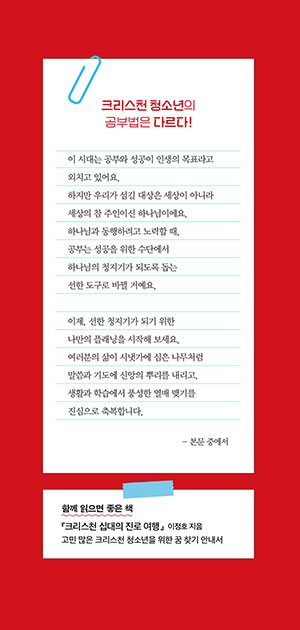 크리스천 청소년의
공부법은 다르다!
이 시대는 공부와 성공이 인생의 목표라고
외치고 있어요.
하지만 우리가 섬길 대상은 세상이 아니라
세상의 참 주인이신 하나님이에요.
하나님과 동행하려고 노력할 때,
공부는 성공을 위한 수단에서
하나님의 청지기가 되도록 돕는
선한 도구로 바뀔 거예요.
이제, 선한 청지기가 되기 위한
나만의 플래닝을 시작해 보세요.
여러분의 삶이 시냇가에 심은 나무처럼
말씀과 기도에 신앙의 뿌리를 내리고,
생활과 학습에서 풍성한 열매 맺기를
진심으로 축복합니다.
- 본문 중에서
함께 읽으면 좋은 책
『크리스천 십대의 진로 여행』 이정호 지음
고민 많은 크리스천 청소년을 위한 꿈 찾기 안내서